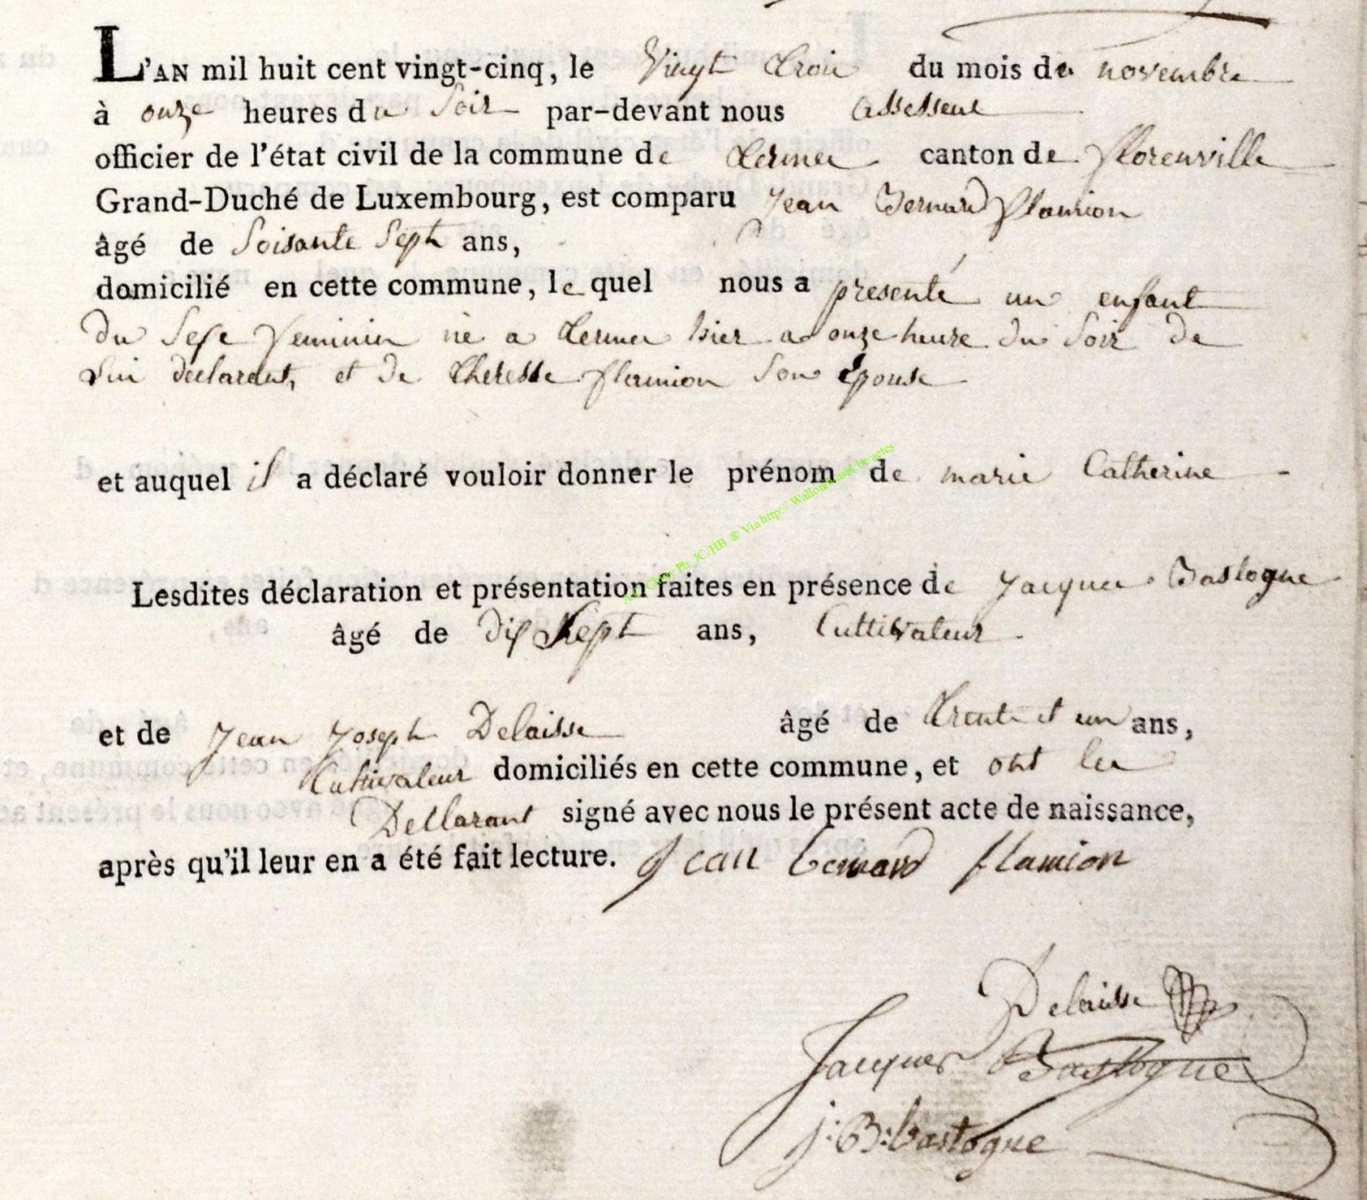 L'AN mil huit cent vingt-cinq, le Vingt trois du mois de novembre
à onze heures du Soir par-devant nous assesseur
officier de l'état civil de la commune de termes canton de florenville
Grand-Duché de Luxembourg, est comparu Jean Bernard flamion
âgé de Soisante Sept ans,
domicilié en cette commune, le quel nous a presenté un enfant
du Sexe feminin né a termes hier a onze heure du Soir de
lui déclarant, et de theresse flamion Son épouse
et auquel il a déclaré vouloir donner le prénom de marie Catherine
Lesdites déclaration et présentation faites en présence de Jacques Bastogne
âgé de dix Sept ans, Cultivateur
et de Jean Joseph Delaisse âgé de trente et un ans,
Cultivateur domiciliés en cette commune, et ont les
Dellarant signé avec nous le présent acte de naissance,
après qu'il leur en a été fait lecture. Jean bernard flamion
Delaisse
Jacques Bastogne
j: B: bastogne